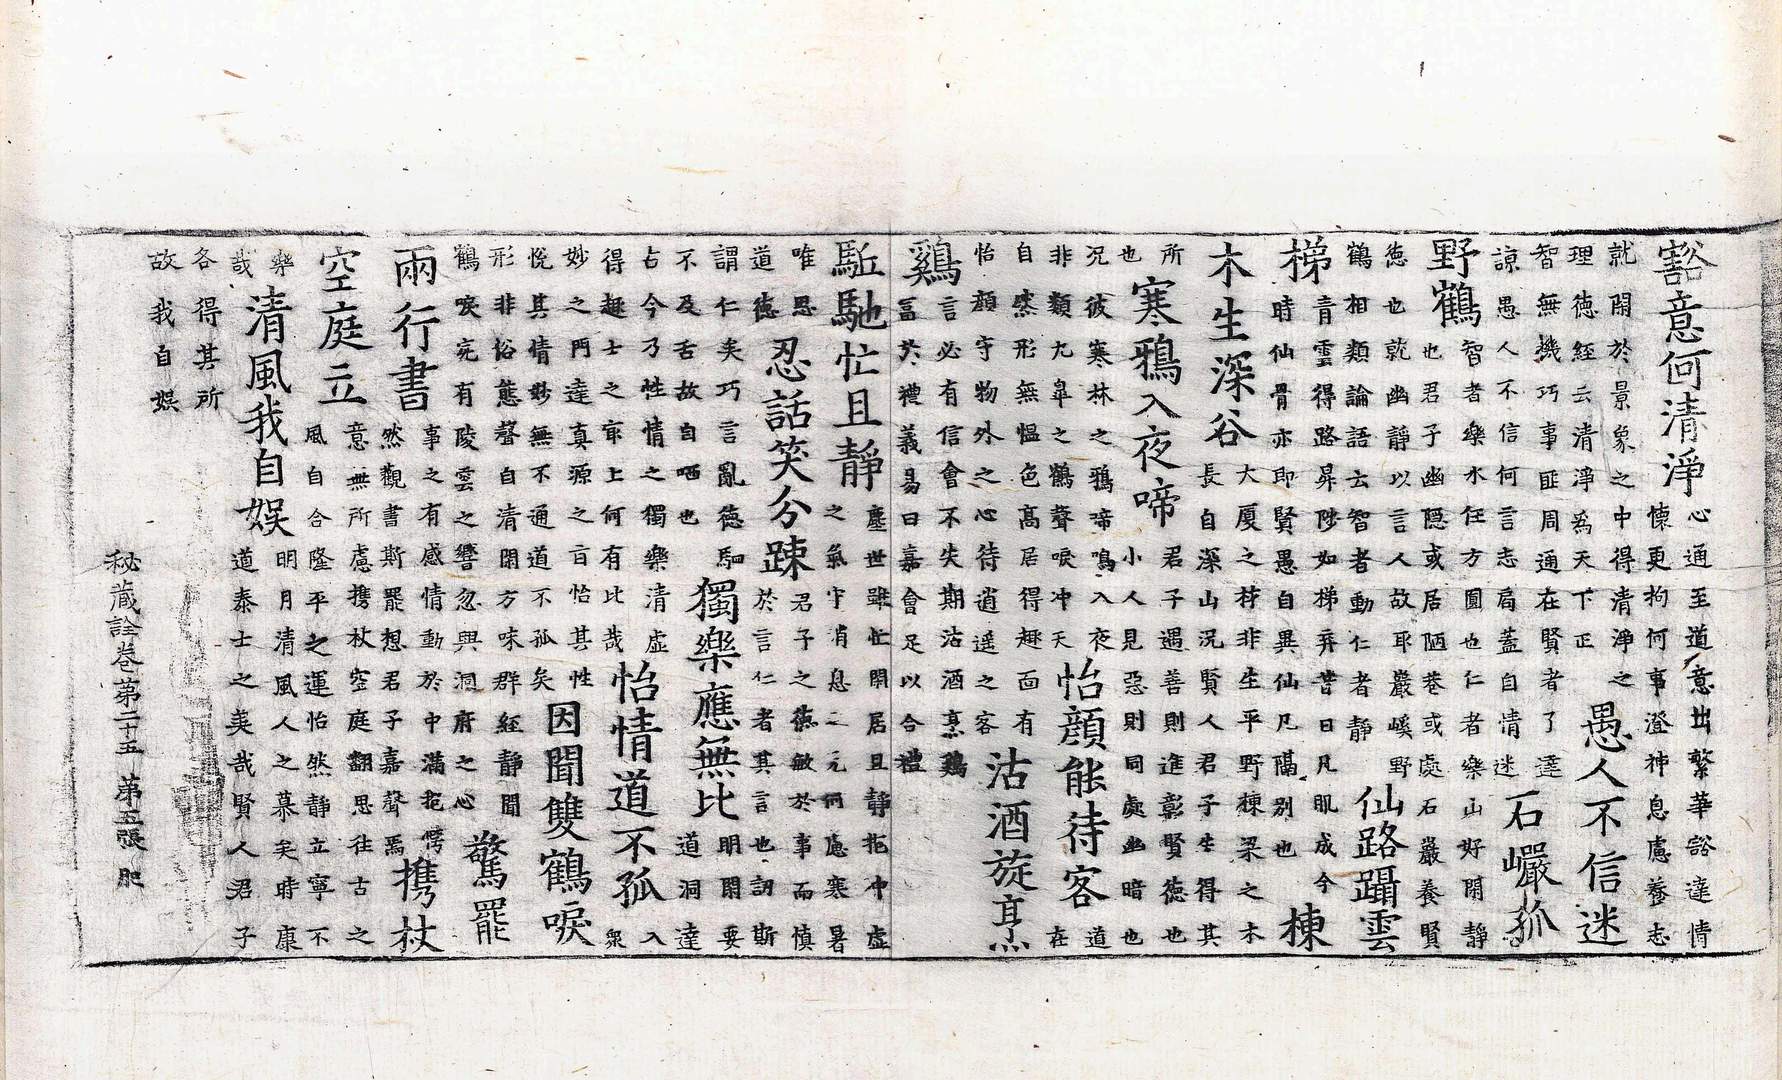 豁意何清淨
心通至道意出繁華豁達情
懷更拘何事澄神息慮養志
就閑於景象之中得清淨之
理德經云清淨為天下正
愚人不信迷
智無機巧事匪周通在賢者了達
諒愚人不信何言志扃蓋自情迷
石巖孤
野鶴
智者樂水任方圓也仁者樂山好閑靜
也君子幽隱或居陋巷或處石巖養賢
德也就幽靜以言人故耳巖嶼野
鶴相類論語云智者動仁者靜
仙路躡雲
梯
青雲得路昇陟如梯弃昔日凡肌成今
時仙骨亦即賢愚自異仙凡隔別也
棟
木生深谷
大厦之材非生平野棟梁之木
長自深山況賢人君子生得其
所
也
寒鴉入夜啼
君子遇善則進彰賢德也
小人見惡則同處幽暗也
況彼寒林之鴉啼鳴入夜
非類九皐之鶴聲唳冲天
怡顏能待客
道
在
自然形無慍色高居得趣面有
怡顏守物外之心待逍遙之客
沽酒旋烹
鷄
言必有信會不失期沽酒烹鷄
冨於禮義易曰嘉會足以合禮
駈馳忙且靜
塵世雖忙閑居且靜抱冲虛
之氣守消息之元何慮寒暑
唯思
道德
忍話笑分踈
君子之德敏於事而慎
於言仁者其言也訒斯
謂仁矣巧言亂德駟
不及舌故自哂也
獨樂應無比
明閑要
道洞達
古今乃性情之獨樂清虛
得趣士之寂上何有比哉
怡情道不孤
入
衆
妙之門達真源之旨怡其性
悅其情妙無不通道不孤矣
因聞雙鶴唳
形非俗態聲自清閑方味群經靜聞
鶴唳宛有陵雲之響忽與洞府之心
驚罷
兩行書
事之有感情動於中滿抱愕
然觀書斯罷想君子嘉聲焉
携杖
空庭立
意無所慮携杖空庭翻思往古之
風自合隆平之運怡然靜立寧不
樂
哉
清風我自娛
明月清風人之慕矣時康
道泰士之美哉賢人君子
各得其所
故我自娛
秘藏詮卷第二十五 第五張 肥